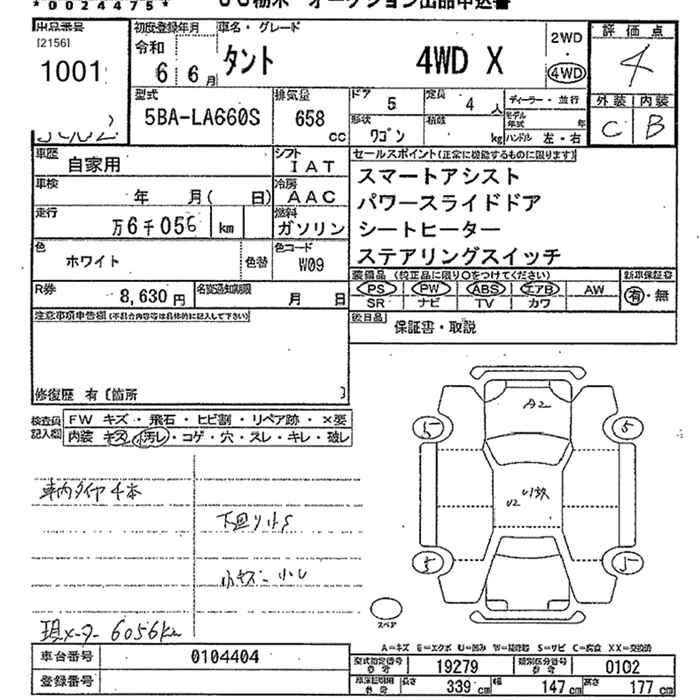 *0024475*
出品番号
[2156]
1001
初度登録年月
令和
6 6月
車名・グレード
タント 4WD X
2WD
・
4WD
評価点
4
外装 内装
C B
型式
5BA-LA660S
排気量
658
cc
ドア
5
定員
4 人
形状
ワゴン
積載
kg
ディーラー・並行
モデル年式 年
ハンドル 左・右
車歴
自家用
シフト
IAT
車検
年 月( 日)
冷房
AAC
走行
万6千056 km
燃料
ガソリン
色
ホワイト
色替
色コード
W09
R券
8,630円
名変通知期限
月 日
セールスポイント(正常に機能するものに限ります)
スマートアシスト
パワースライドドア
シートヒーター
ステアリングスイッチ
装備品 (純正品に限り○をつけてください)
PS PW ABS エアB AW
SR ナビ TV カワ
新車保証書
有・無
後日品
保証書・取説
注意事項申告欄(不具合内容等は具体的に記入して下さい)
修復歴 有〔箇所 〕
検査員記入欄
FW キズ・飛石・ヒビ割・リペア跡・×要
内装 キズ・汚レ・コゲ・穴・スレ・キレ・破レ
車内タイヤ4本
下回り小S
小キズ 小し
現メーター 6056km
A2
U2
5
5
5
5
スペア
A=キズ E=エクボ U=凹み W=補修跡 S=サビ C=腐食 XX=交換済
車台番号
0104404
登録番号
型式指定番号
参考
19279
類別区分番号
参考
0102
参考
長さ
339cm
幅
147cm
高さ
177cm